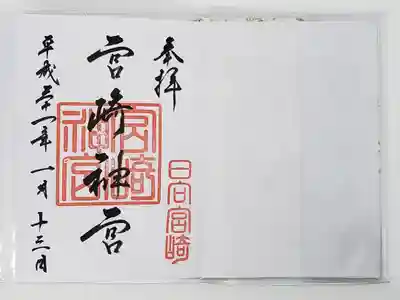 奉拝
日向宮崎
宮崎神宮
宮崎神宮
平成三十一年一月十三日